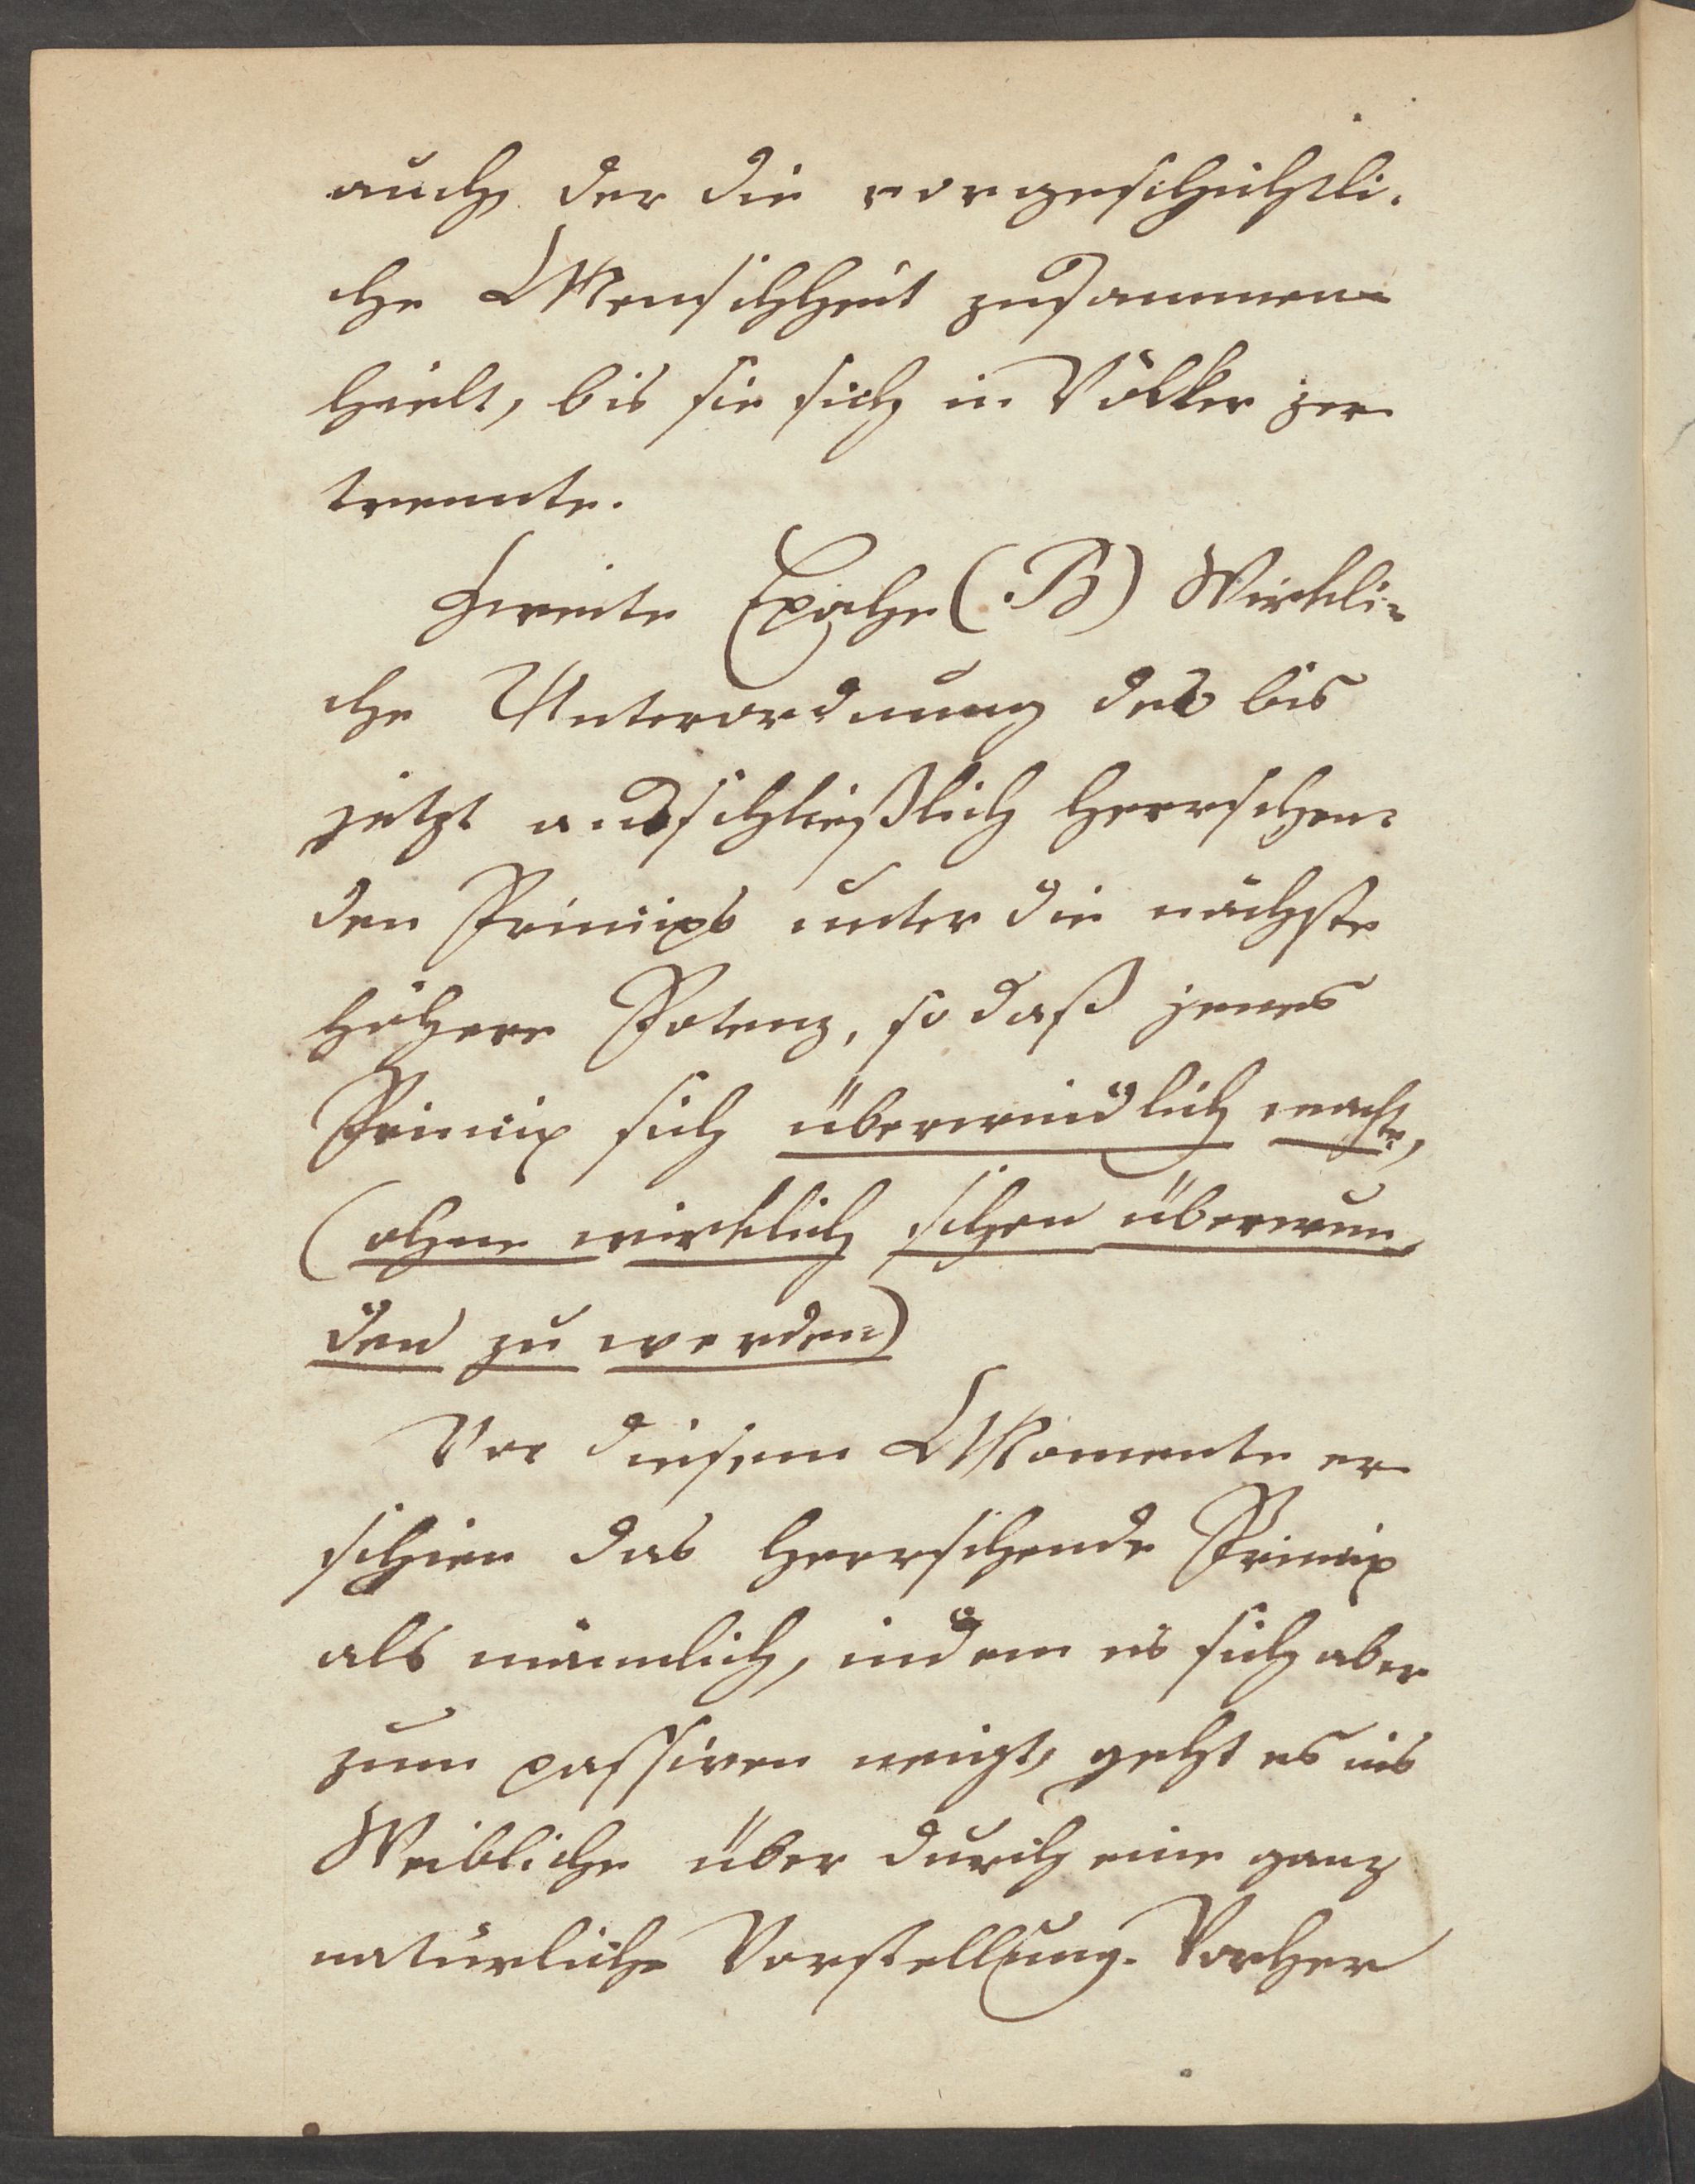 auch der die vorgeschichtli-
che Menschheit zusammen-
hielt, bis sie sich in Völker zer
trennte.
Zweite Epoche (B) Wirkli-
che Unterordnung des bis
jetzt ausschließlich herrschen-
den Princips unter die nächste
höhere Potenz, so daß jenes
Princip sich überwindlich machte,
(ohne wirklich schon überwun-
den zu werden)
Vor diesem Momente er
schien das herrschende Princip
als männlich, indem es sich aber
zum passiven neigt, geht es ins
Weibliche über durch eine ganz
natürliche Vorstellung. Vorher